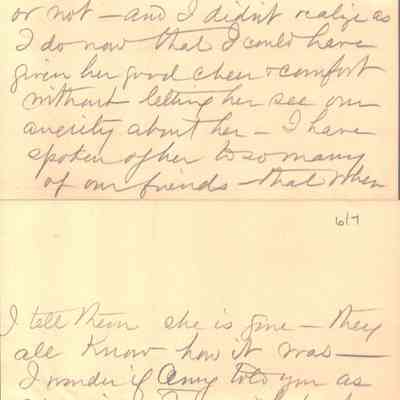 or not — and I didn't realize as
I do now that I could have
given her good cheer & comfort
without letting her see our
anxiety about her — I have
spoken of her to so many
of our friends — that when
6/7
I tell them she is gone — they
all know how it was —
I wonder if Amy told you as